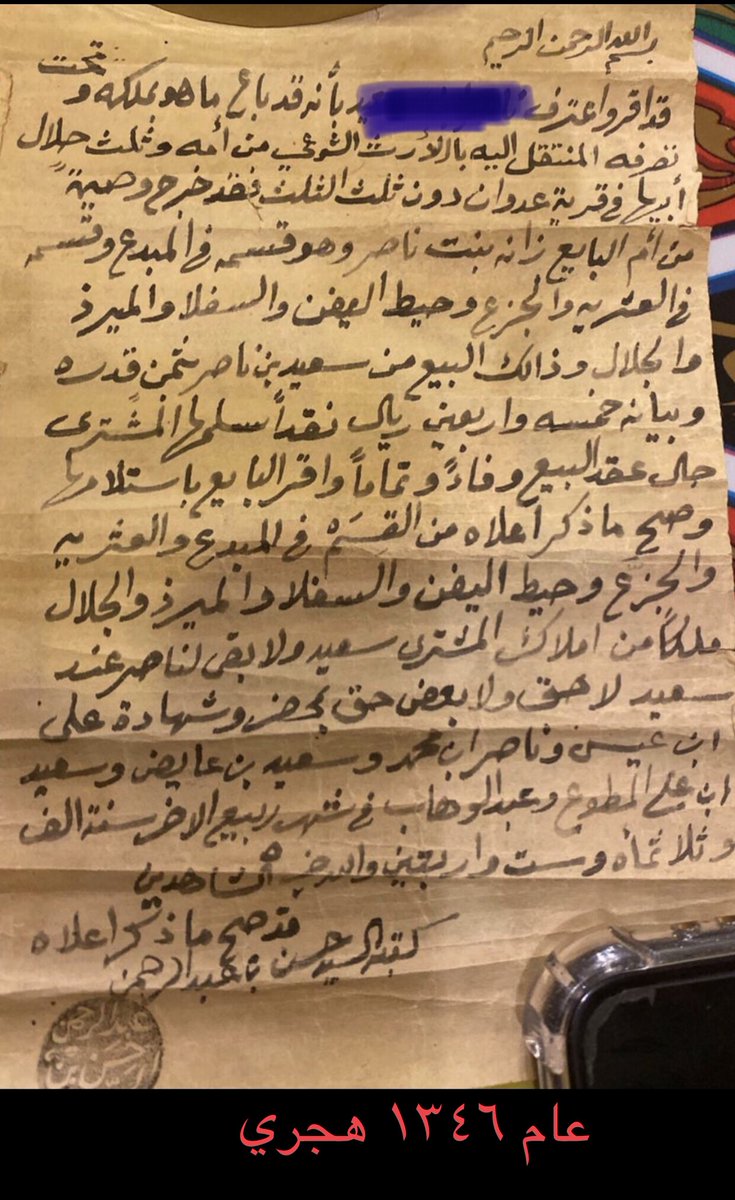 بسم الله الرحمن الرحيم
قد اقر واعترف بأنه قد باع ما هو بملكه و تحت
تصرفه المنتقل اليه بالارث الشرعي من أمه وثلث حلال
أبيها في قرية عدوان دون ثلث الثلث فقد خرج وصيةً
من أم البايع زانه بنت ناصر وهو قسمه في المبدع وقسمه
في العثريه والجزع وحيط اليفن والسفلا والميرذ
والجلال وذالك البيع من سعيد بن ناصر بثمن قدره
وبيانه خمسه واربعين ريال نقداً سلمها المشتري
حال عقد البيع وفاءً وتماماً واقر البايع باستلامها
وصح ما ذكر أعلاه من القِسَمْ في المبدع والعثريه
والجزع وحيط اليفن والسفلا والميرذ والجلال
ملكاً من املاك المشتري سعيد ولا بقى لناصر عند
سعيد لا حق ولا بعض حق بمحضر وشهادة علي
ابن عيسى وناصر ابن محمد وسعيد بن عايض وسعيد
ابن علي المطوع وعبدالوهاب في شهر ربيع الاخر سنة الف
وثلاثمأه وست واربعين والله خير الشاهدين
قد صح ما ذكر اعلاه
كتبه السيد حسن بن عبدالرحمن
عبدالرحمن
حسن بن
عام ١٣٤٦ هجري